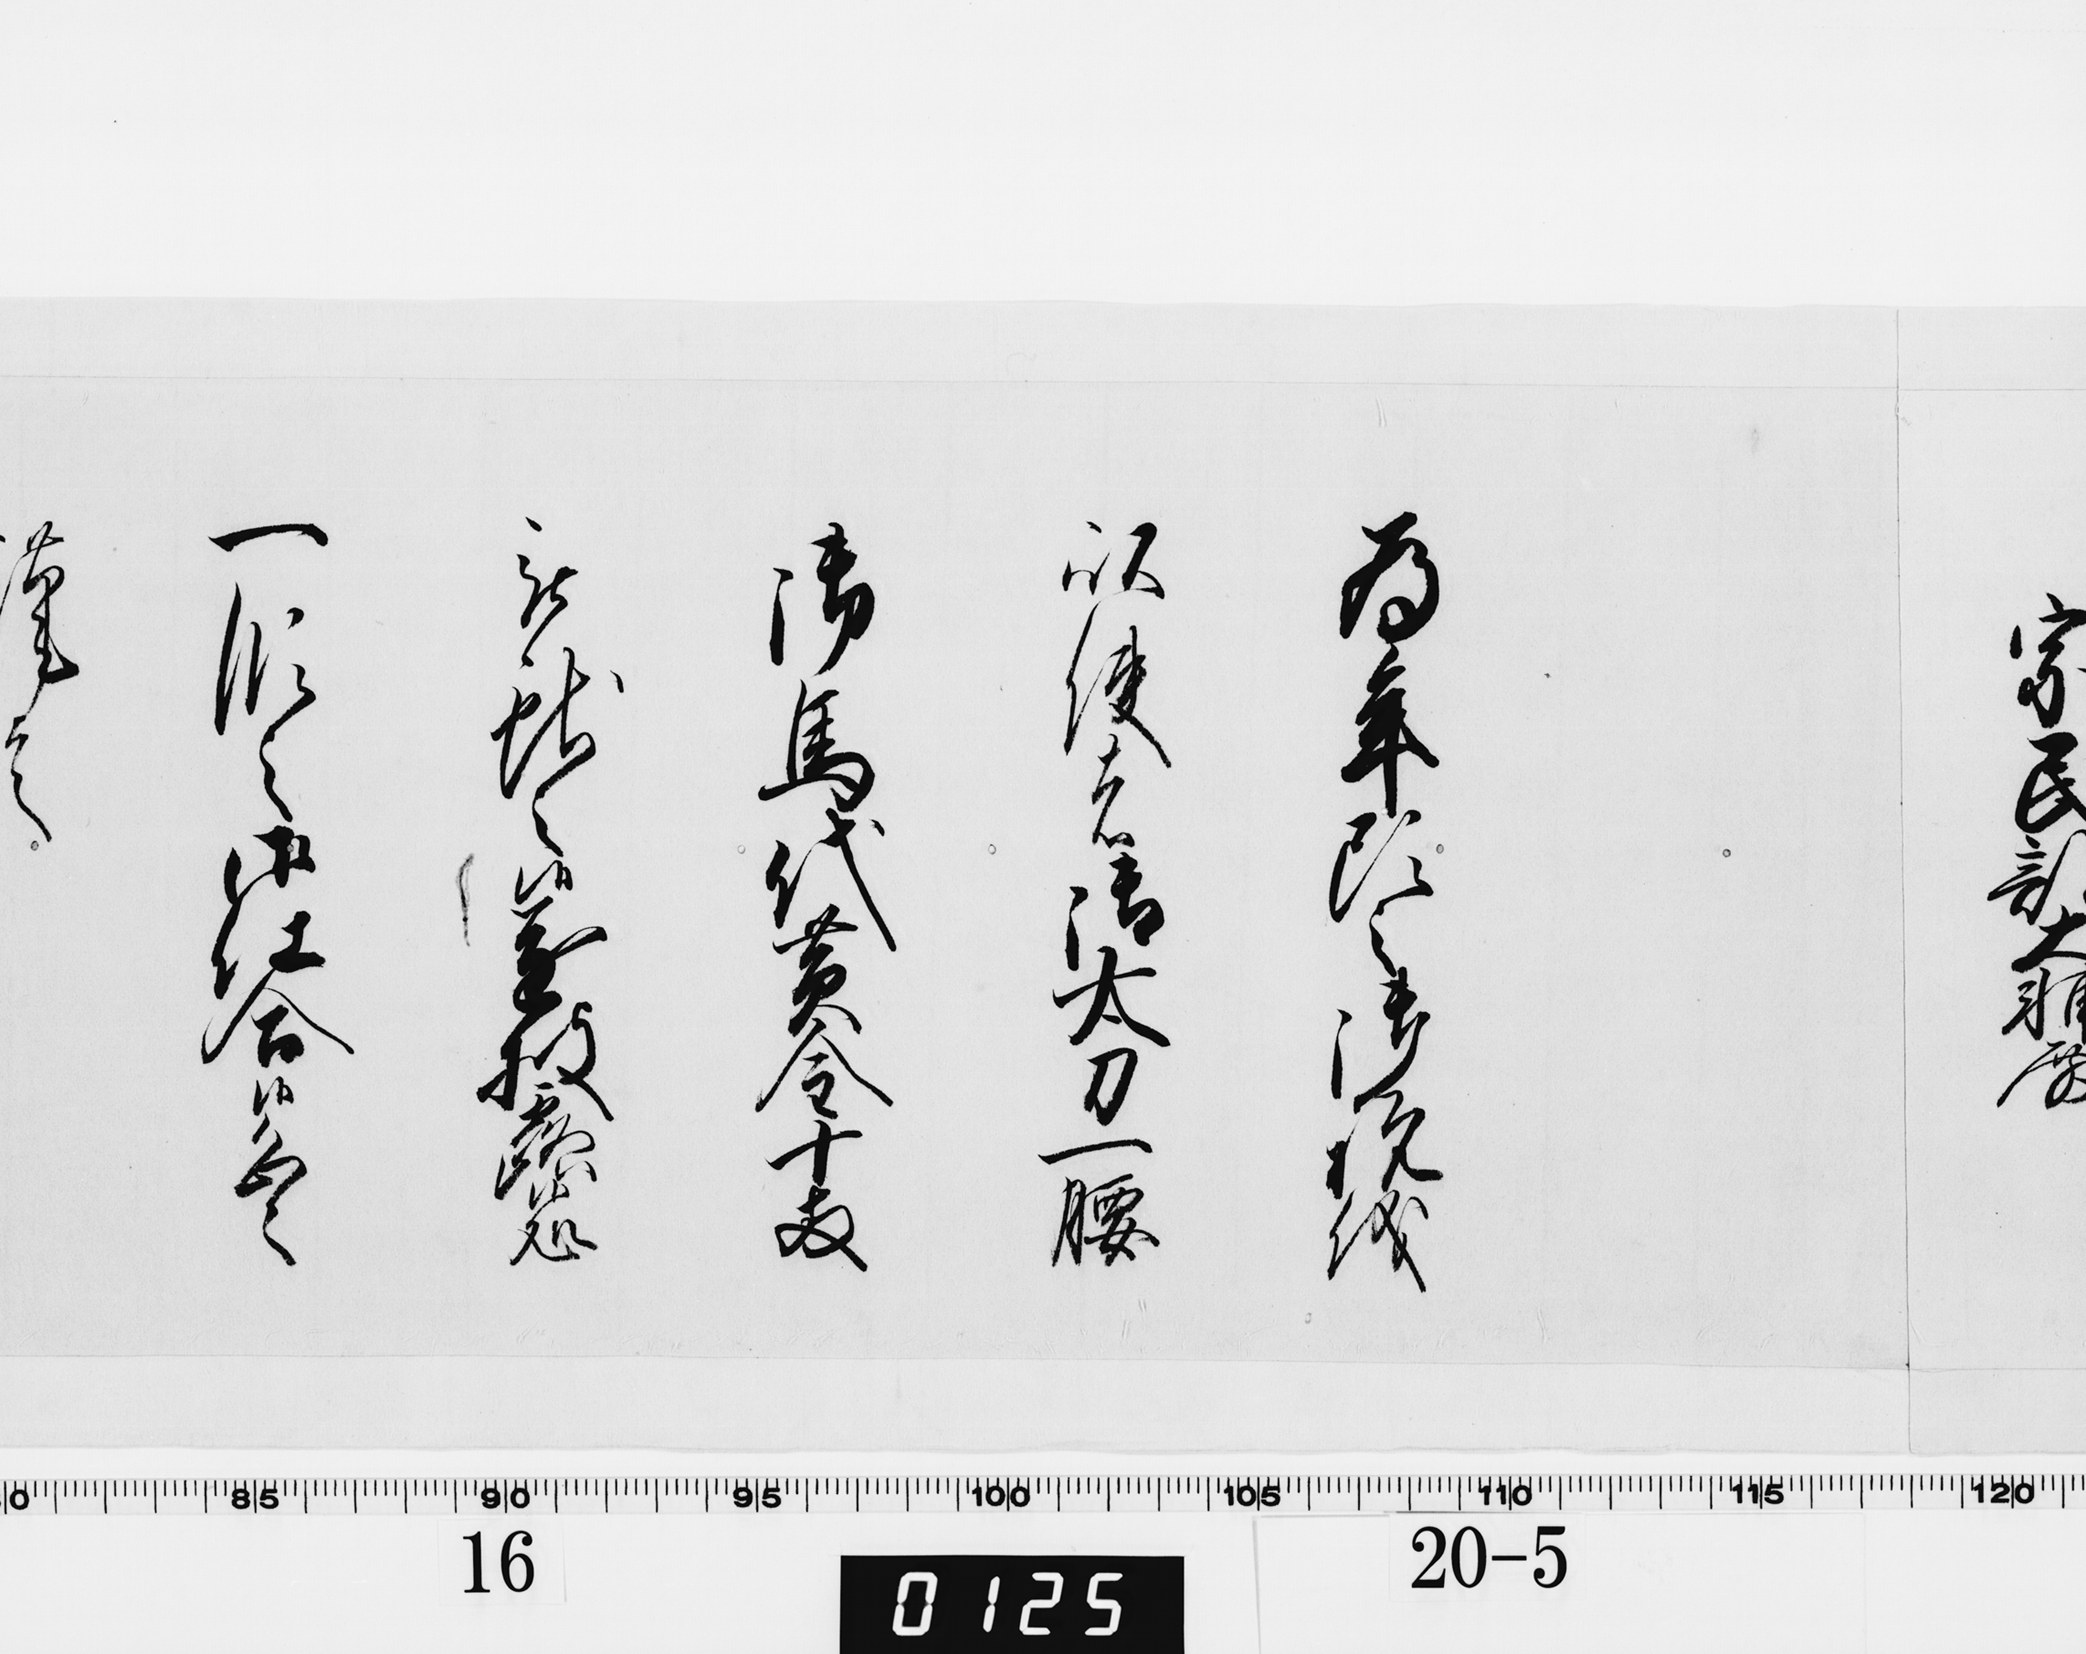 宗民部大輔殿
為年頭之御祝儀
以使者御太刀一腰
御馬代黄金十両
被献之候遂披露候処
一段之御仕合候恐々
謹言
80 85 90 95 100 105 110 115 120
16 0125 20-5